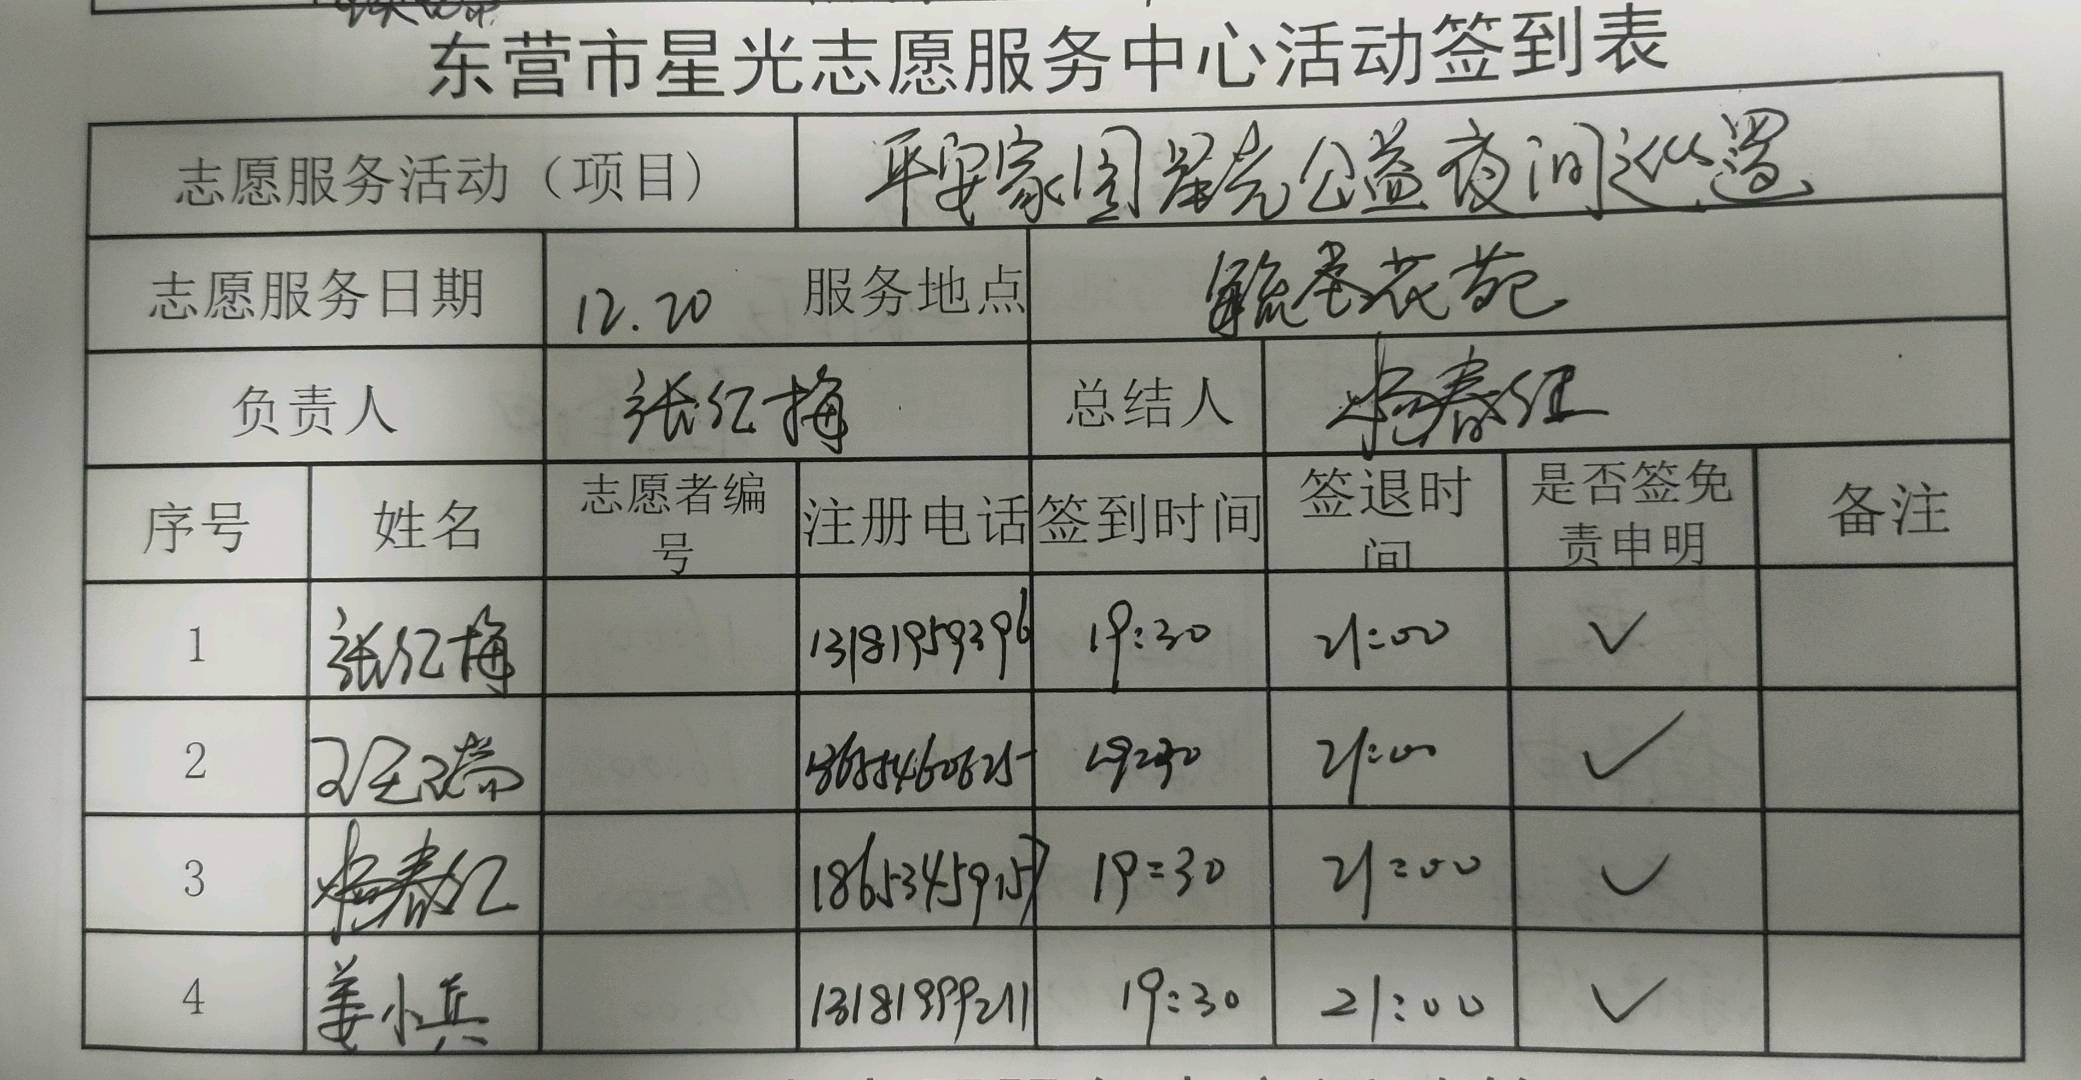 东营市星光志愿服务中心活动签到表
志愿服务活动（项目） 平安家园星光公益夜间巡逻
志愿服务日期 12.20 服务地点 花苑
负责人 张红梅 总结人 杨春红
序号 姓名 志愿者编号 注册电话 签到时间 签退时间 是否签免责申明 备注
1 张红梅 13181959396 19:30 21:00 ✓
2 19:30 21:00 ✓
3 杨春红 18653459157 19:30 21:00 ✓
4 姜小兵 13181999211 19:30 21:00 ✓